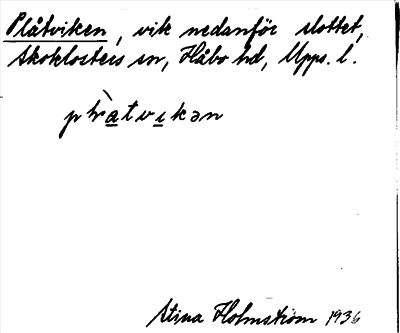 Plåtviken, vik nedanför slottet,
Skoklosters sn, Håbo hd, Upps. l.
plàtvikən
Stina Holmström 1936